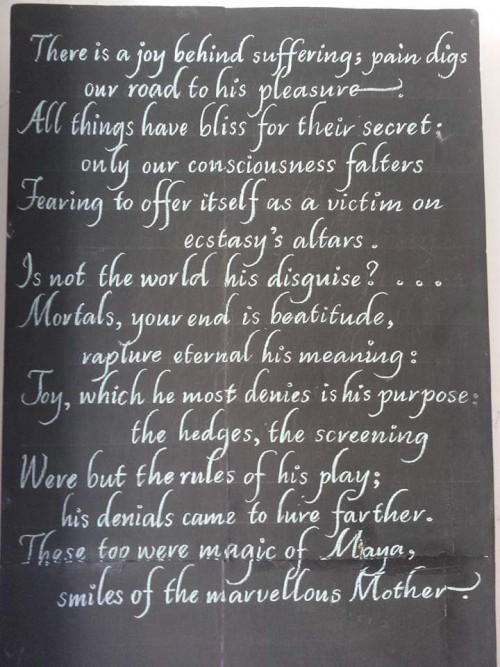 There is a joy behind suffering; pain digs
our road to his pleasure.
All things have bliss for their secret;
only our consciousness falters
Fearing to offer itself as a victim on
ecstasy's altars.
Is not the world his disguise? . . .
Mortals, your end is beatitude,
rapture eternal his meaning:
Joy, which he most denies is his purpose:
the hedges, the screening
Were but the rules of his play;
his denials came to lure farther.
These too were magic of Maya,
smiles of the marvellous Mother.